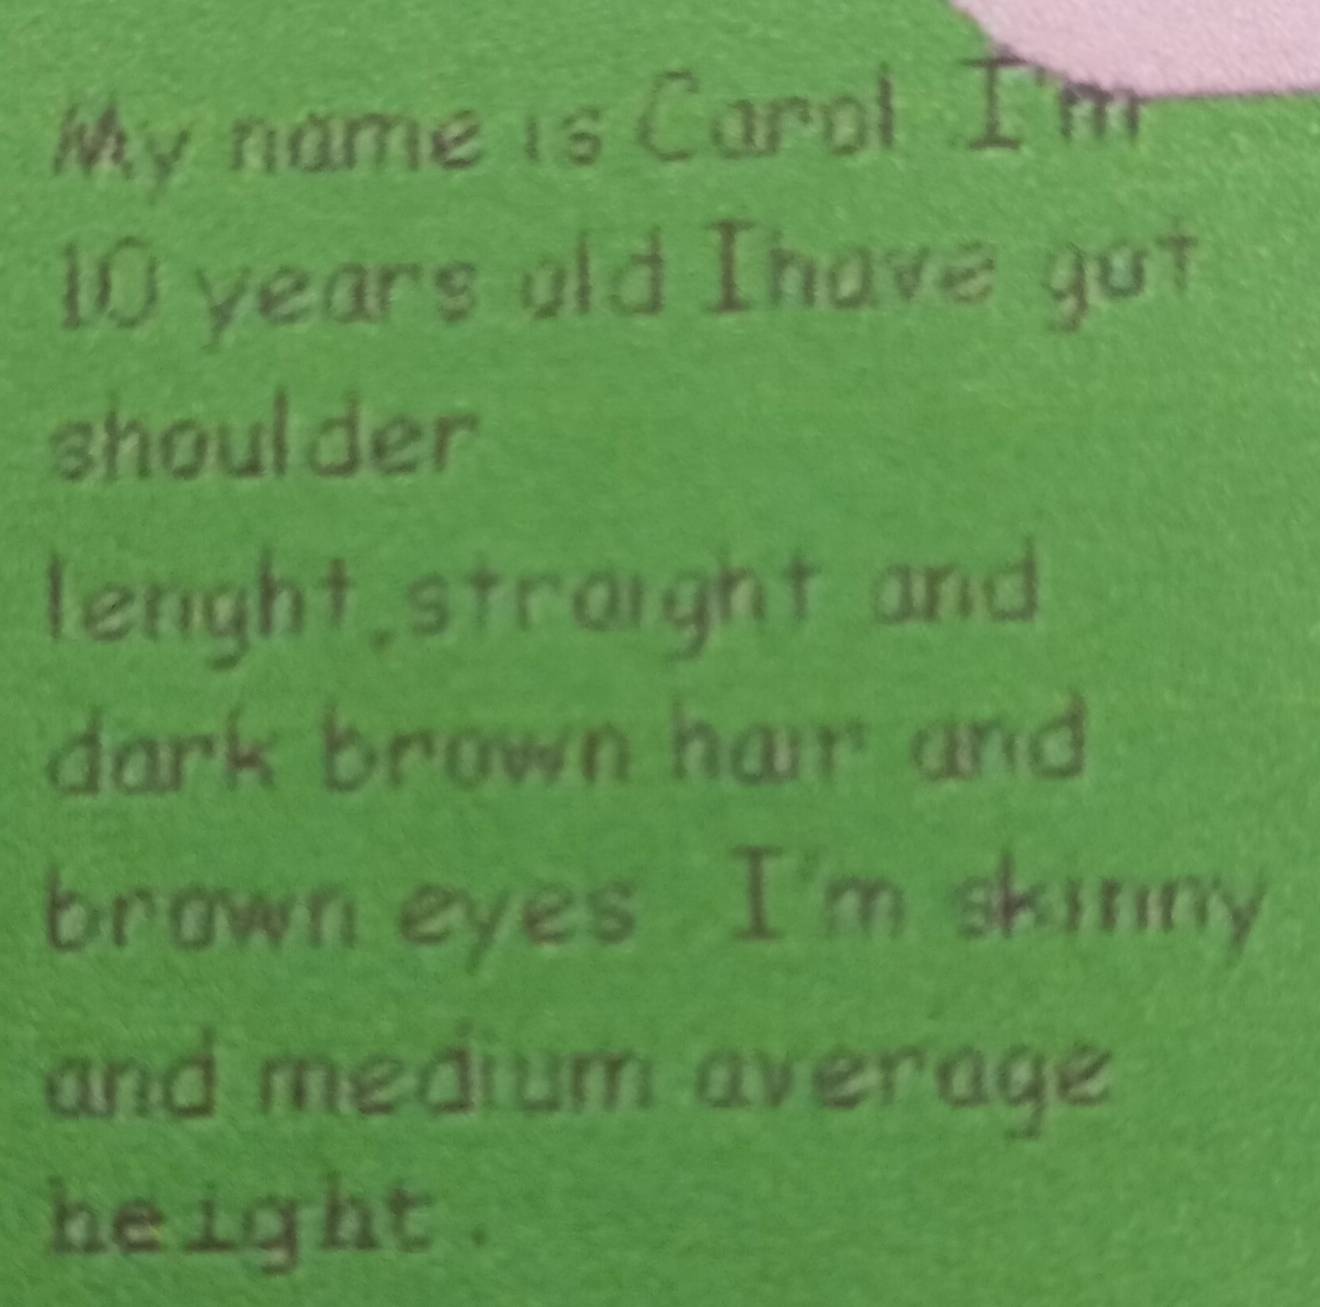 My name is Carol I'm
10 years old Ihave got
shoulder
lenght,straight and
dark brown hair and
brown eyes I'm skinny
and medium average
height.